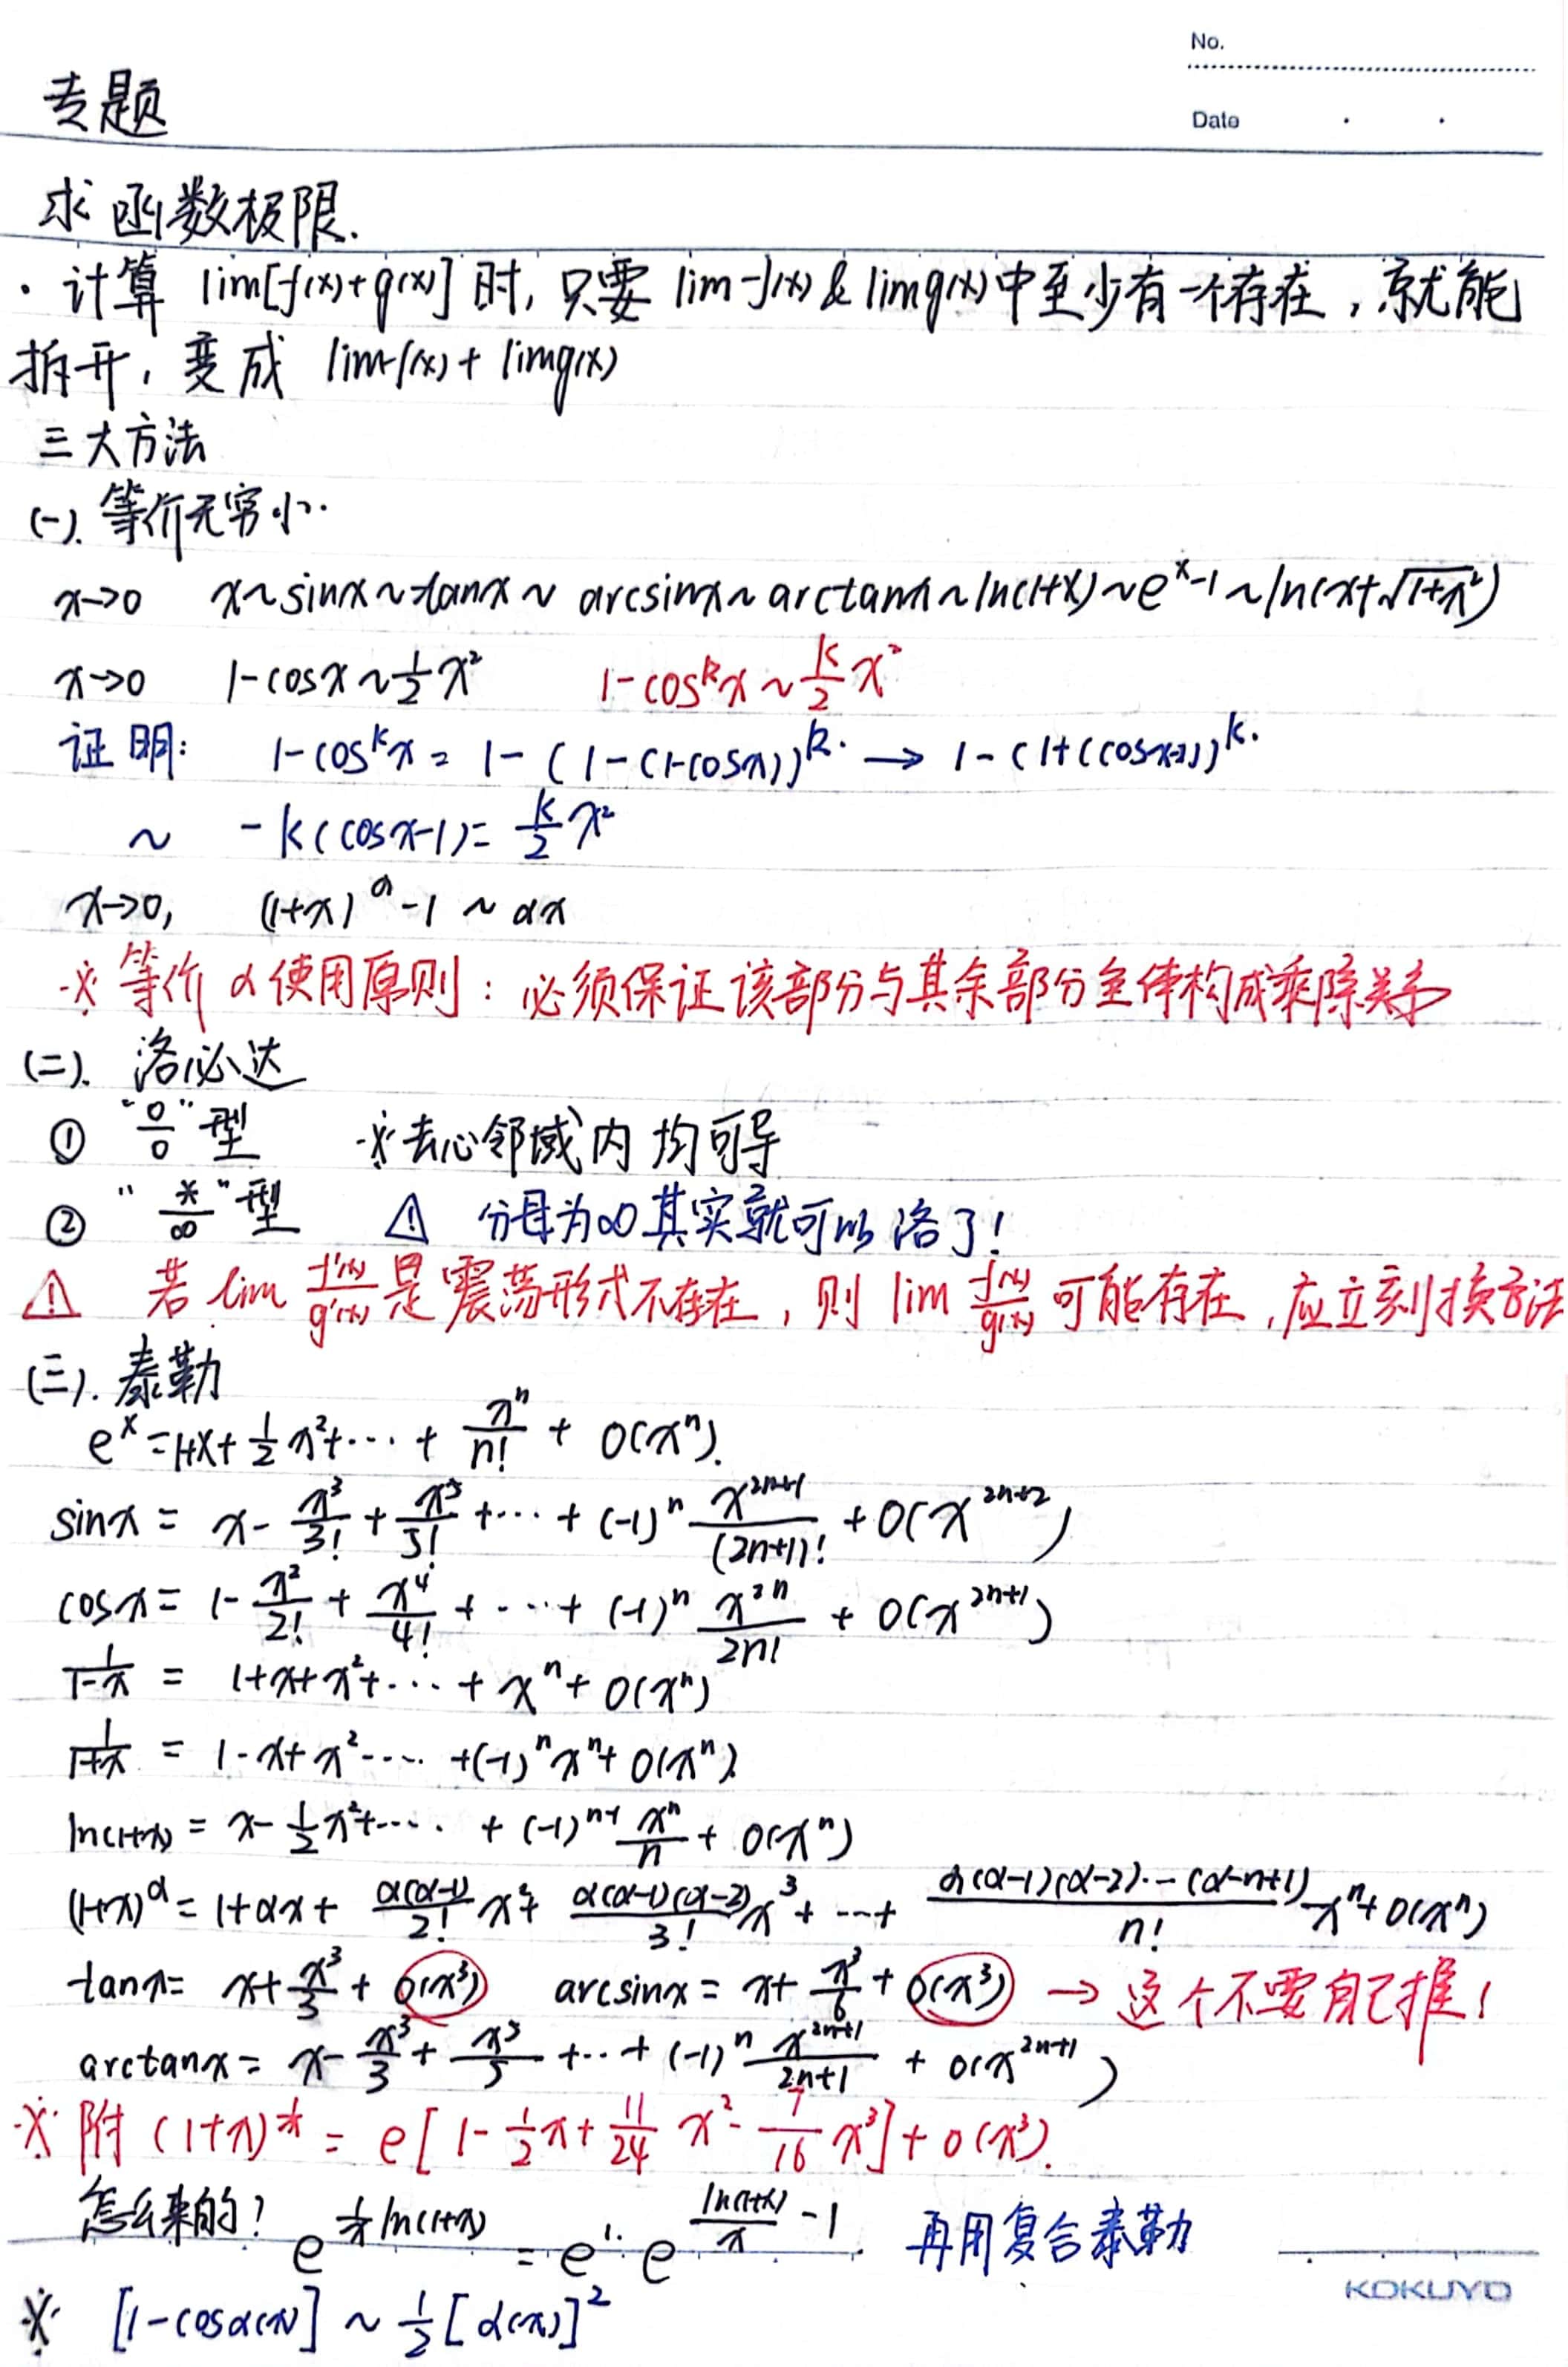 No.
专题
Date . .
求函数极限.
· 计算 lim[f(x)+g(x)] 时, 只要 lim f(x) & lim g(x) 中至少有一个存在, 就能
拆开, 变成 lim f(x) + lim g(x)
三大方法
(一). 等价无穷小.
x→0 x~sinx~tanx~arcsinx~arctanx~ln(1+x)~e^x-1~ln(x+√(1+x²))
x→0 1-cosx~½x² 1-cos^k x~k/2 x²
证明: 1-cos^k x = 1-(1-(1-cosx))^k. → 1-(1+(cosx-1))^k.
~ -k(cosx-1)= k/2 x²
x→0, (1+x)^α-1 ~ αx
※ 等价α使用原则: 必须保证该部分与其余部分全体构成乘除关系
(二). 洛必达
① "0/0"型 ※去心邻域内均可导
② "*/∞"型 ⚠ 分母为∞其实就可以洛了!
⚠ 若 lim f'(x)/g'(x) 是震荡形式不存在, 则 lim f(x)/g(x) 可能存在, 应立刻换方法
(三). 泰勒
e^x=1+x+½x²+…+x^n/n! + o(x^n).
sinx = x - x³/3! + x⁵/5! +…+ (-1)^n x^(2n+1)/(2n+1)! + o(x^(2n+2))
cosx = 1- x²/2! + x⁴/4! + …+ (-1)^n x^(2n)/2n! + o(x^(2n+1))
1/(1-x) = 1+x+x²+…+ x^n + o(x^n)
1/(1+x) = 1-x+x²-… +(-1)^n x^n+ o(x^n).
ln(1+x) = x-½x²+… + (-1)^(n-1) x^n/n + o(x^n)
(1+x)^α = 1+αx+ α(α-1)/2! x²+ α(α-1)(α-2)/3! x³ + …+ α(α-1)(α-2)…(α-n+1)/n! x^n+o(x^n)
tanx= x+x³/3 + o(x³) arcsinx = x+ x³/6 + o(x³) → 这个不要自己推!
arctanx = x- x³/3 + x⁵/5 +…+ (-1)^n x^(2n+1)/(2n+1) + o(x^(2n+1))
※ 附 (1+x)^(1/x) = e[1-½x+11/24 x²-7/16 x³]+o(x³).
怎么来的? e^(1/x ln(1+x)) = e¹·e^(ln(1+x)/x -1). 再用复合泰勒
KOKUYO
※ [1-cosα(x)] ~ ½[α(x)]²